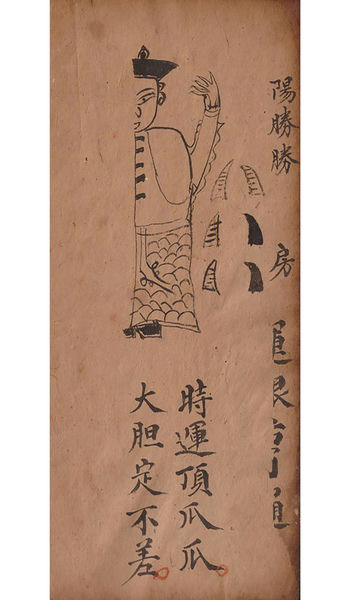 陽勝勝
房
時運頂瓜瓜
大胆定不差